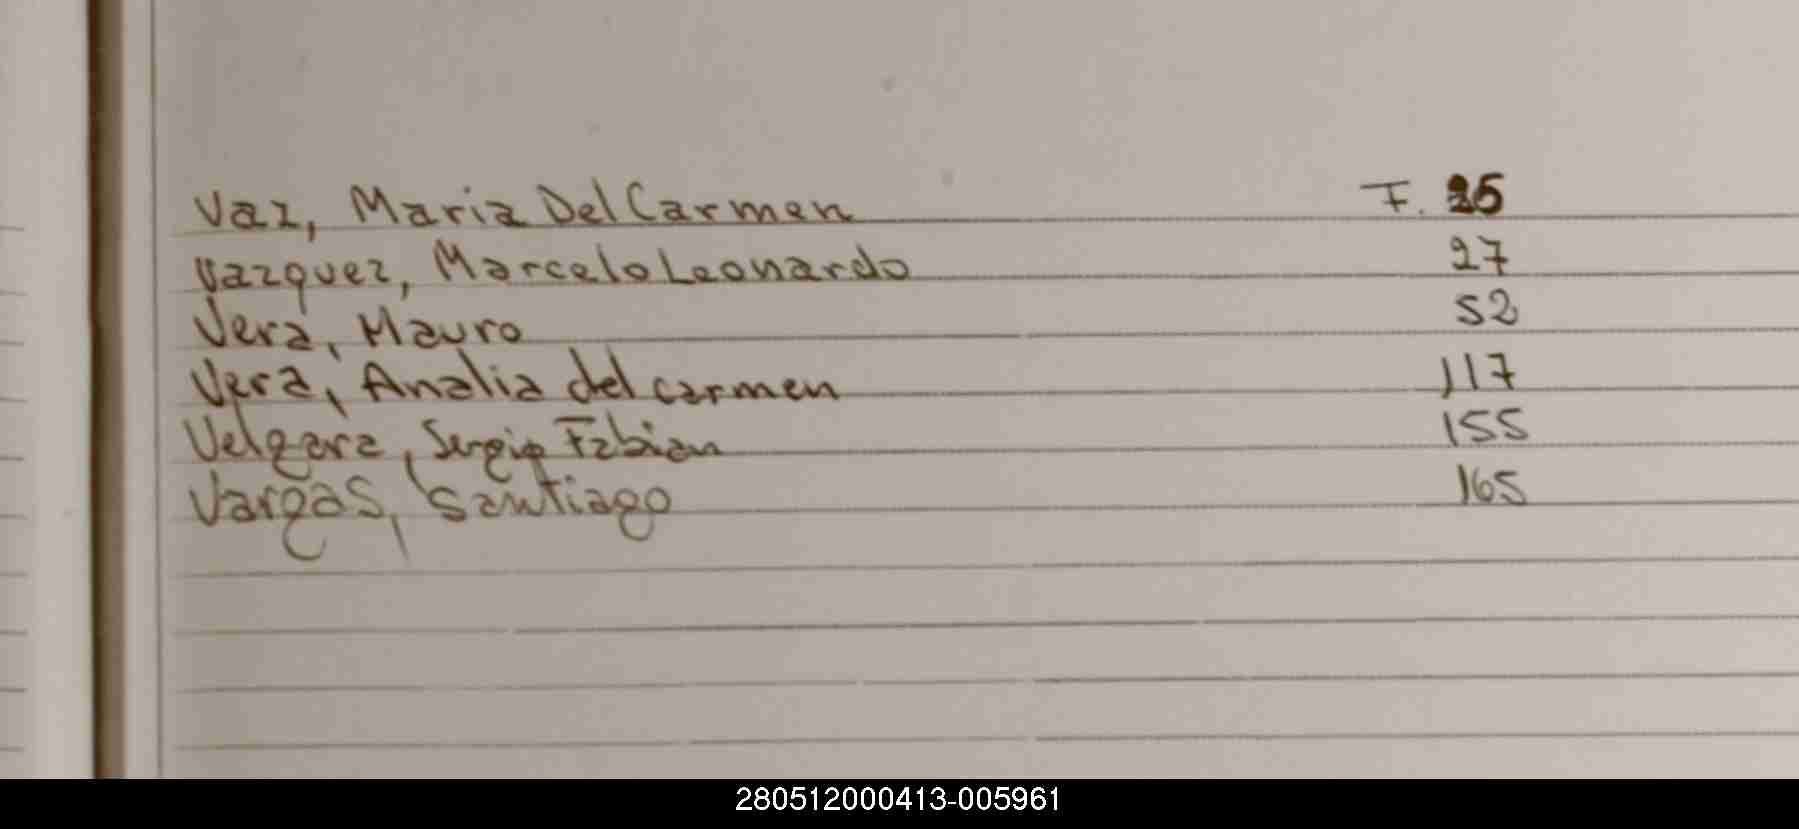 Vaz, Maria Del Carmen F. 25
Vazquez, Marcelo Leonardo 27
Vera, Mauro 52
Vera, Analia del carmen 117
Velgara, Sergio Fabian 155
Vargas, Santiago 165
280512000413-005961